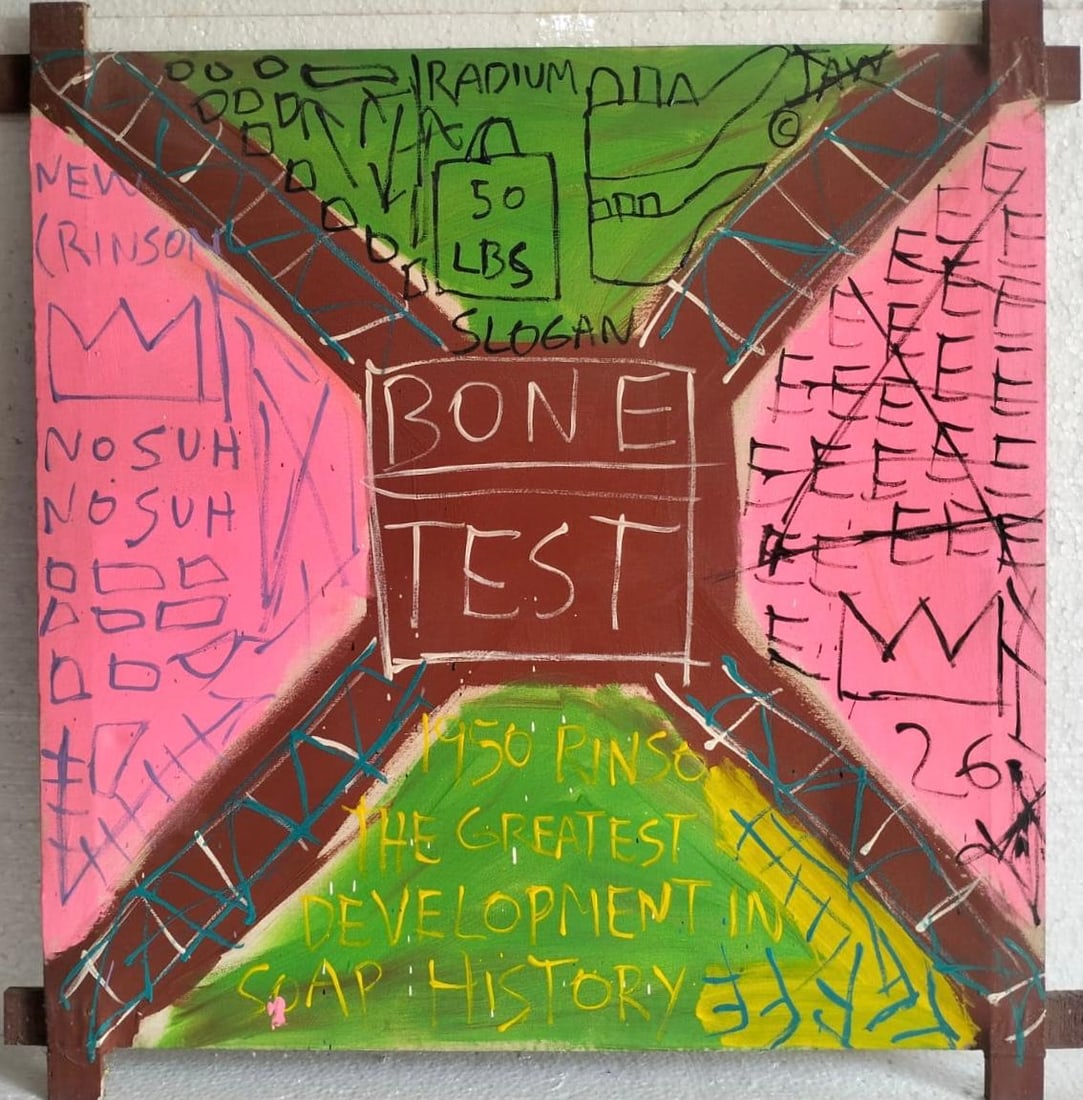 RADIUM
JAW
©
50
LBS
SLOGAN
NEW
(RINSON
NO SUH
NO SUH
BONE
TEST
E
E E
E E E
E E E
E E E E
E E E E E
E E E E E
E
26
1950 RINSO
THE GREATEST
DEVELOPMENT IN
SOAP HISTORY